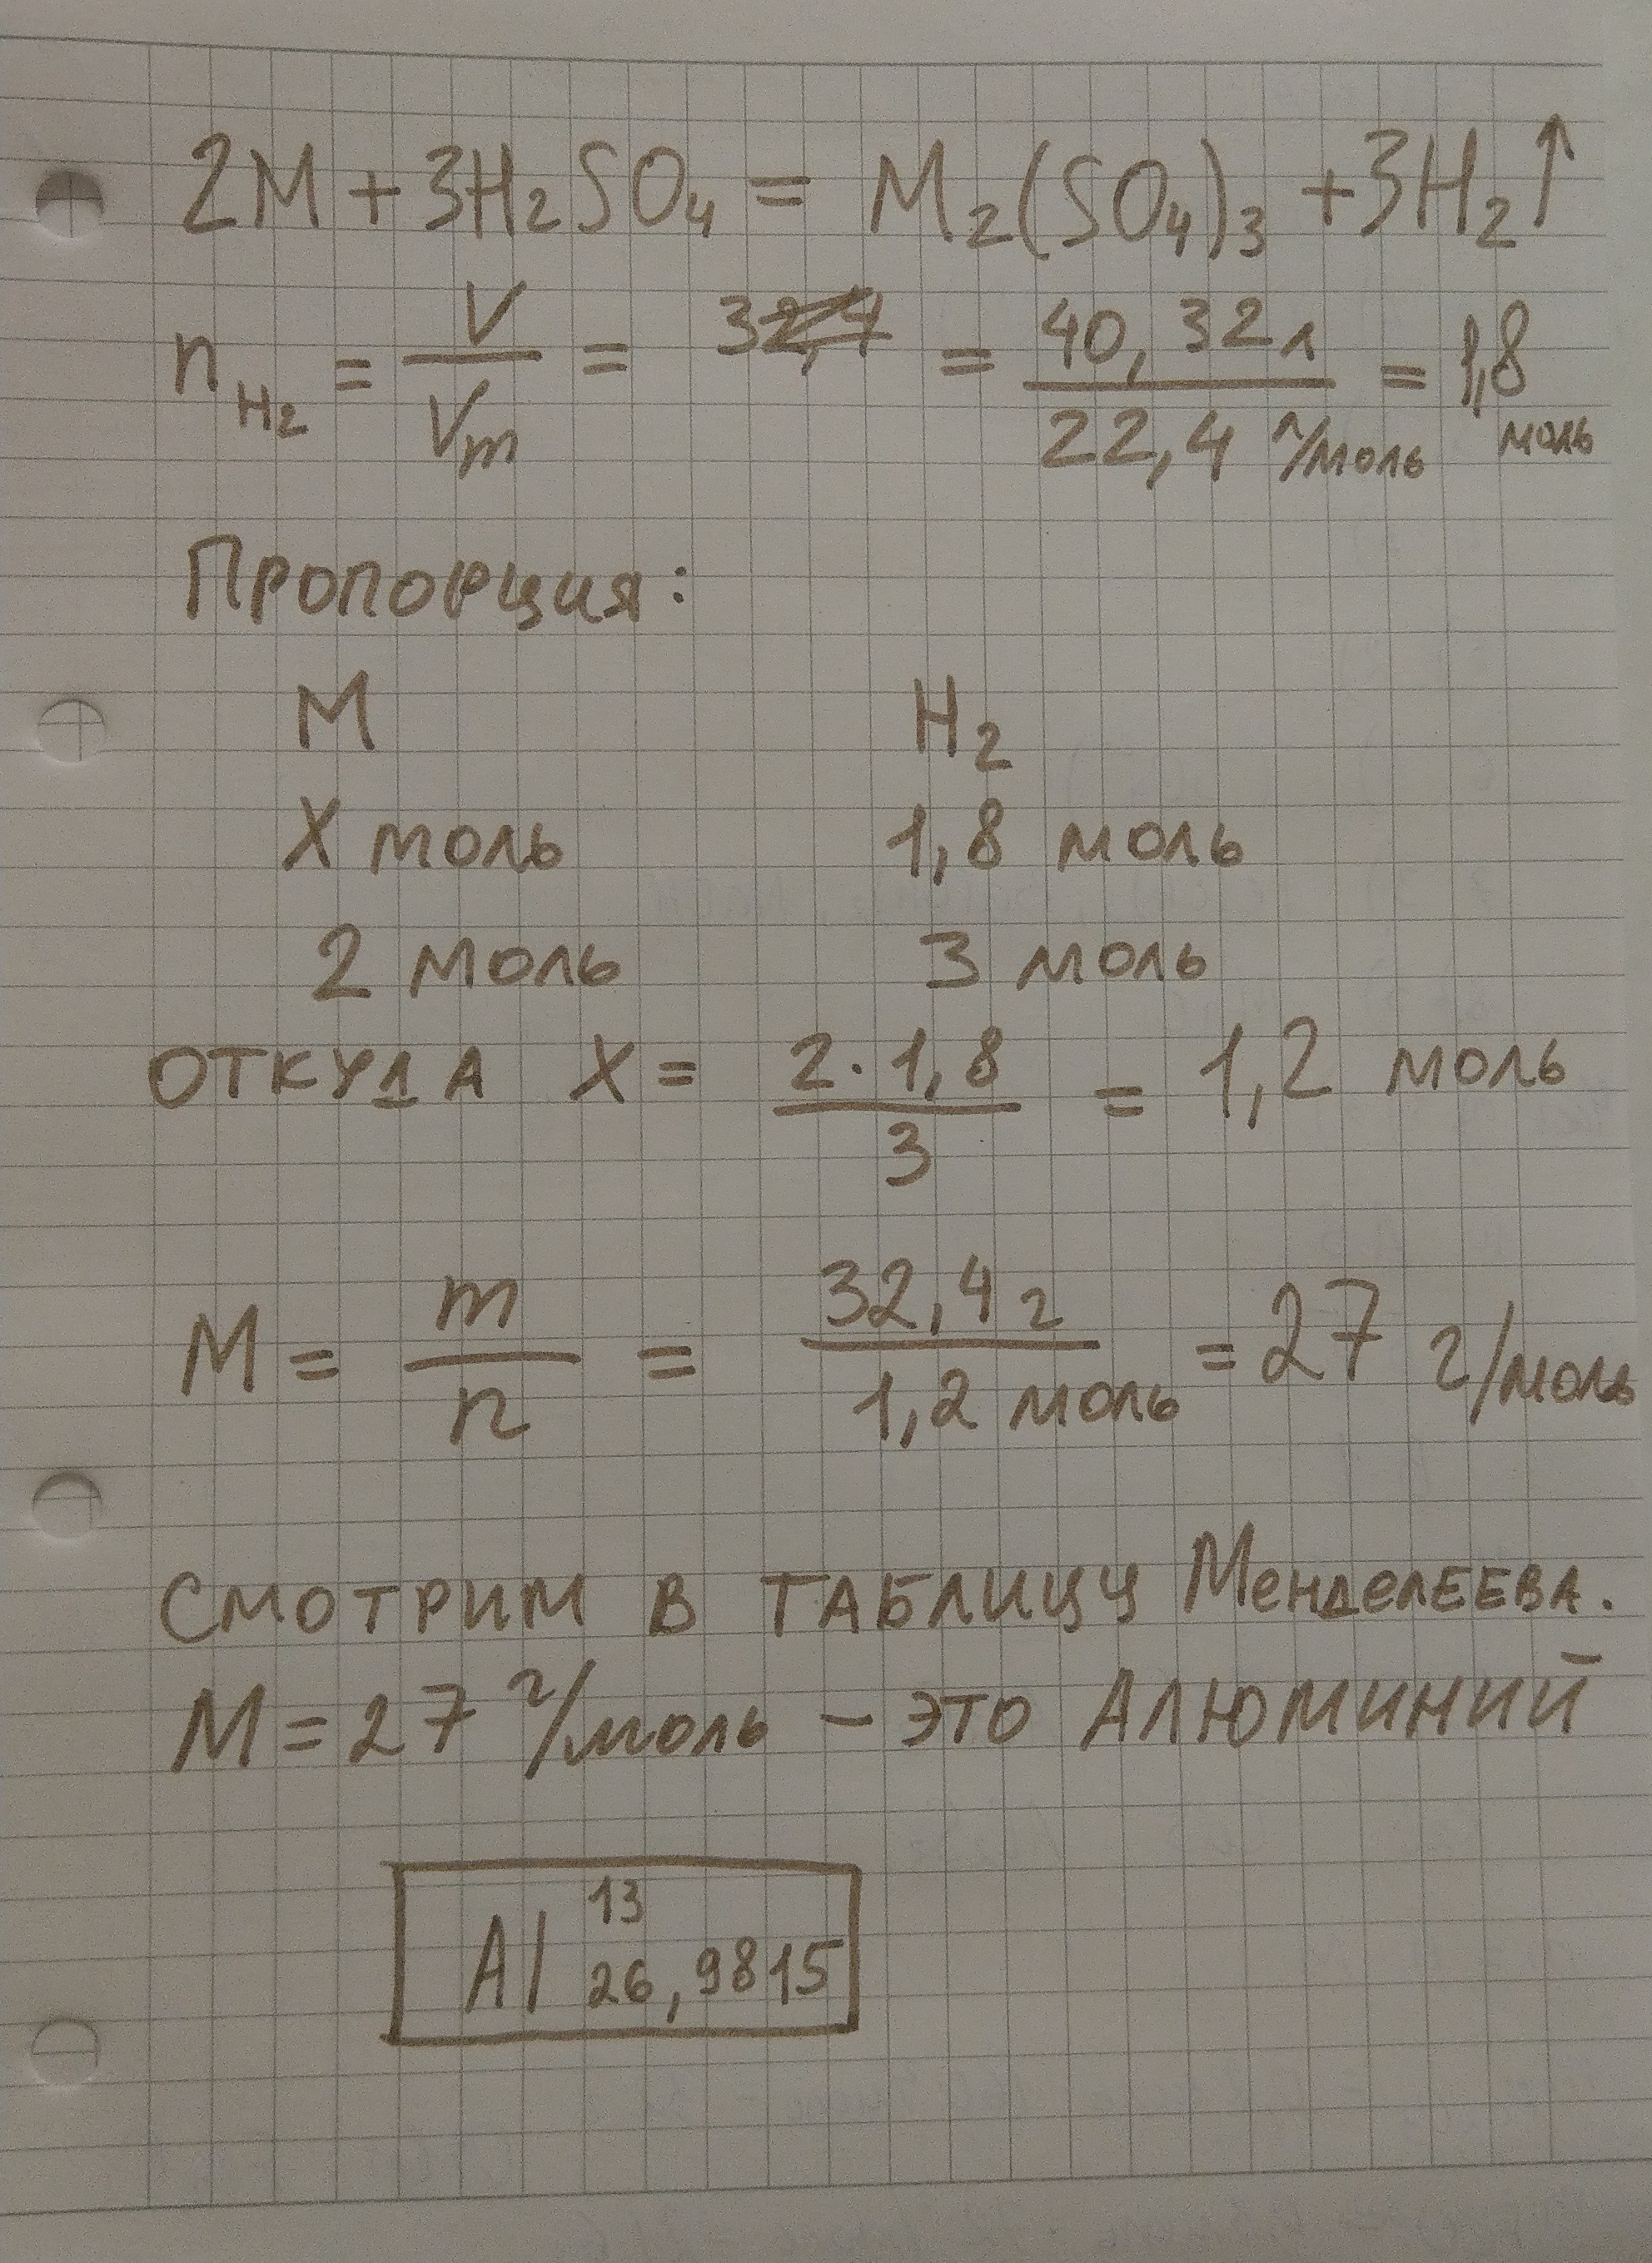 2M + 3H₂SO₄ = M₂(SO₄)₃ + 3H₂↑
n H₂ = V/Vm = 32,4 = 40,32 л / 22,4 л/моль = 1,8 моль
Пропорция:
M H₂
X моль 1,8 моль
2 моль 3 моль
откуда X = 2·1,8 / 3 = 1,2 моль
M = m/n = 32,4 г / 1,2 моль = 27 г/моль
Смотрим в таблицу Менделеева.
M = 27 г/моль – это Алюминий
Al 13 26,9815